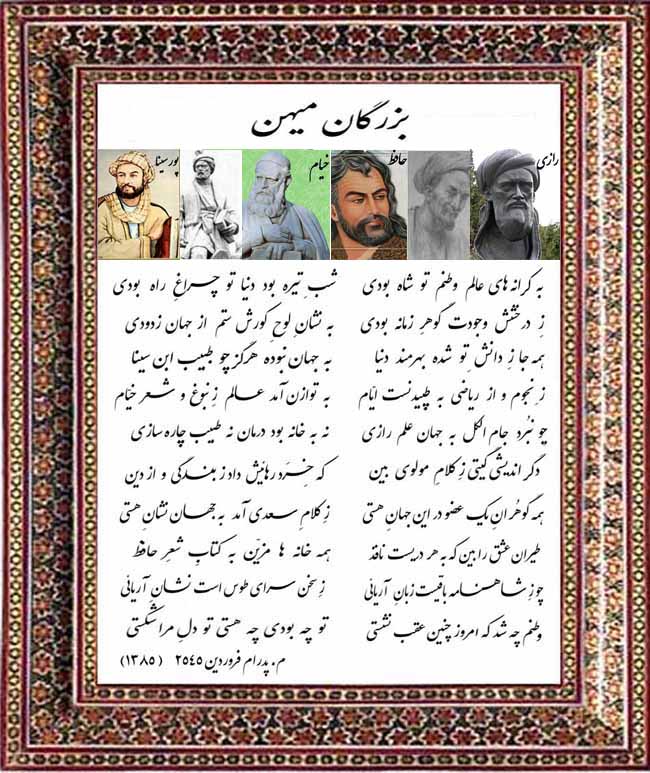 بزرگان میهن
رازی حافظ خیام پور سینا
به کرانه های عالم وطنم تو شاه بودی شبِ تیره بود دنیا تو چراغِ راه بودی
زِ درخشش وجودت گوهرِ زمانه بودی به نشانِ لوحِ کورش ستم از جهان زدودی
همه جا زِ دانش تو شده بهرمند دنیا به جهان نبوده هرگز چو طبیب ابن سینا
زِ نجوم و از ریاضی به تپیدنست ایّام به توازن آمد عالم زِ نبوغ و شعر خیّام
چو نبُرد جام الکل به جهان علم رازی نه به خانه بود درمان نه طبیب چاره سازی
دگر اندیشی گیتی زِ کلامِ مولوی بین که خِرَد رهائیش داد ز بندگی و از دین
همه گوهُرانِ یک عضو در این جهانِ هستی زِ کلامِ سعدی آمد به جهان نشانِ هستی
طیرانِ عشق را بین که به هر دریست نافذ همه خانه ها مزیّن به کتابِ شعرِ حافظ
چو زِ شاهنامه باقیست زبانِ آریائی زِ سخن سرای طوس است نشانِ آریائی
وطنم چه شد که امروز چنین عقب نشستی تو چه بودی چه هستی تو دلِ مرا شکستی
م. پدرام فروردین ۲۵۴۵ (۱۳۸۵)